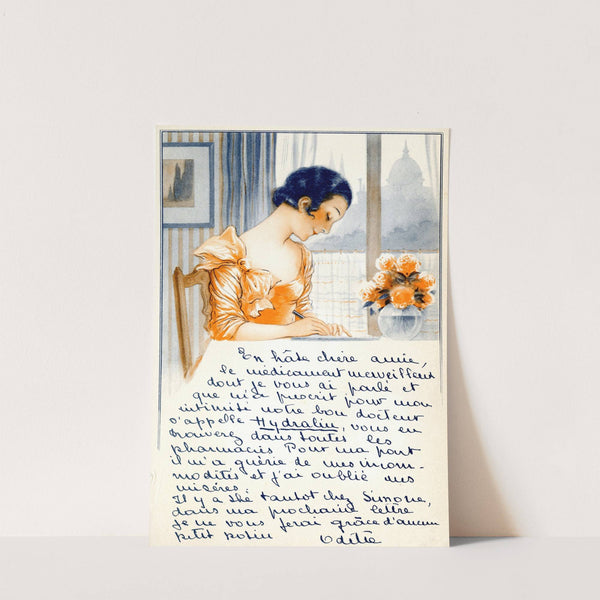 En hâte chère amie,
le médicament merveilleux
dont je vous ai parlé et
que m'a prescrit pour mon
intimité notre bon docteur
s'appelle Hydralin, vous en
trouverez dans toutes les
pharmacies Pour ma part
il m'a guérie de mes incom-
modités et j'ai oublié mes
misères.
Il y a thé tantôt chez Simone,
dans ma prochaine lettre
je ne vous ferai grâce d'aucun
petit potin
Oditte